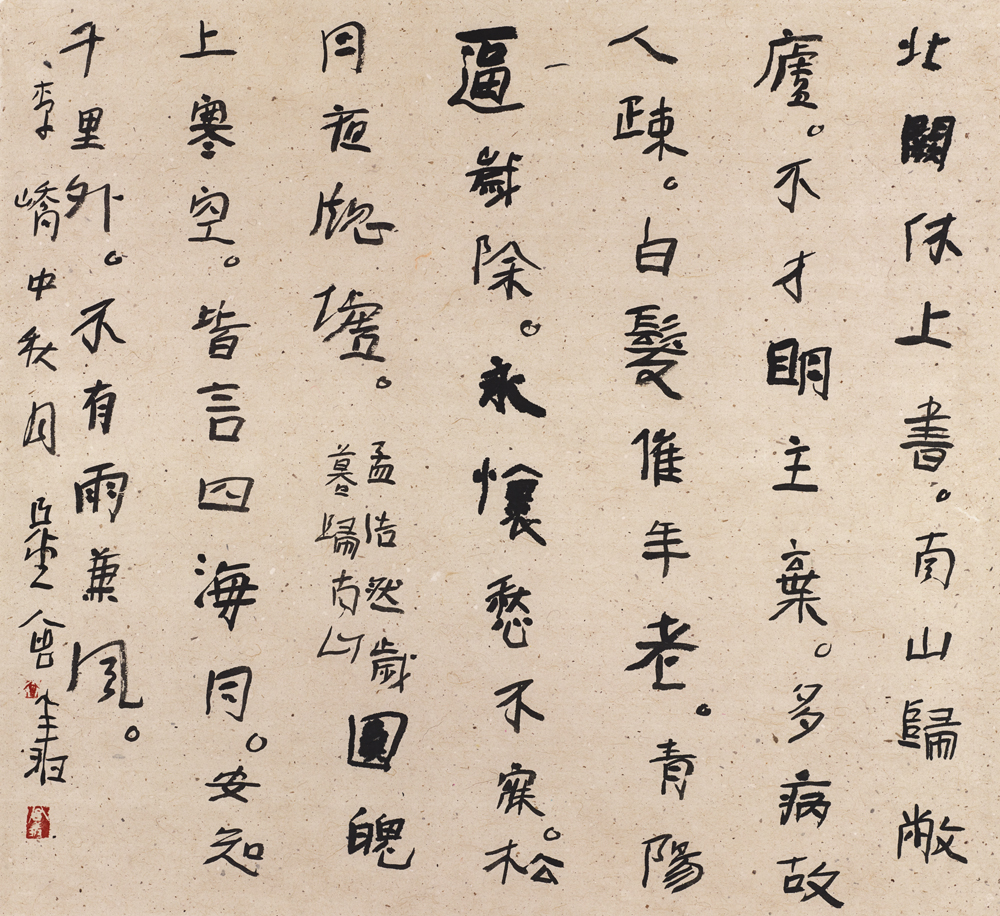 北闕休上書。南山歸敝
廬。不才明主棄。多病故
人疎。白髮催年老。青陽
逼歲除。永懷愁不寐。松
月夜牕墟。
孟浩然歲
暮歸南山
圓魄
上寒空。皆言四海同。安知
千里外。不有雨兼風。
李嶠中秋月